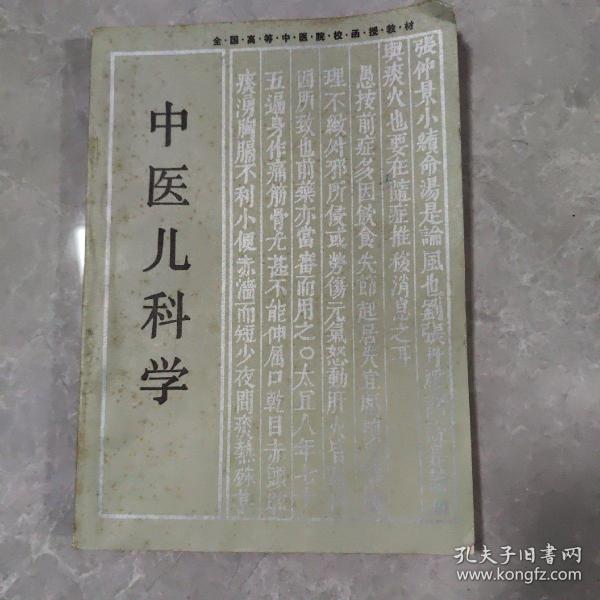 全·国·高·等·中·医·院·校·函·授·教·材
中医儿科学
張仲景小續命湯是論風也劉張
與痰火也要在隨症推移消息之耳
愚按前症多因飲食失節起居失宜
理不緻外邪所侵或勞傷元氣怒動肝火
因所致也前藥亦當審而用之〇太五八年七
五遍身作痛筋骨尤甚不能伸屬口乾目赤頭
痰湧胸膈不利小便赤澀而短少夜間痰熱
孔夫子旧书网
www.kongfz.com